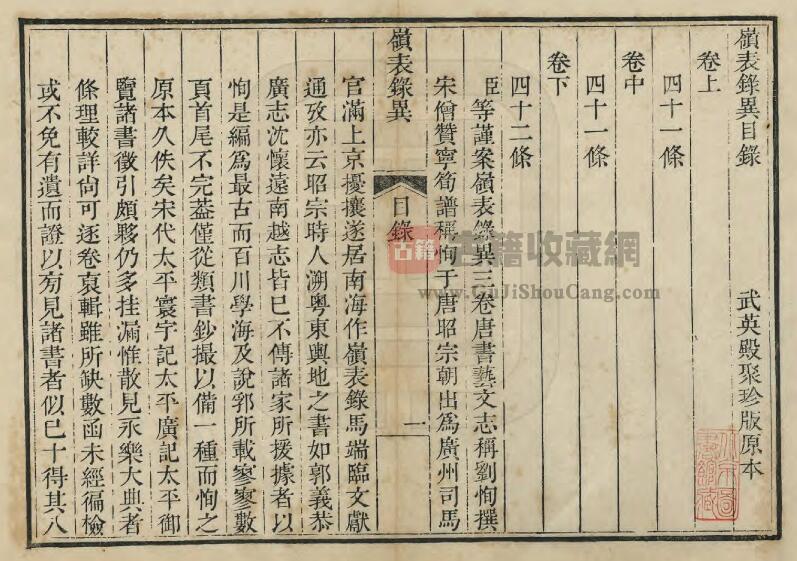 嶺表錄異目錄
武英殿聚珍版原本
卷上
四十一條
卷中
四十一條
卷下
四十二條
臣等謹案嶺表錄異三卷唐書藝文志稱劉恂撰
宋僧贊寧筍譜稱恂于唐昭宗朝出為廣州司馬
嶺表錄異
目錄
一
官滿上京擾攘遂居南海作嶺表錄馬端臨文獻
通攷亦云昭宗時人溯粵東輿地之書如郭義恭
廣志沈懷遠南越志皆已不傳諸家所援據者以
恂是編爲最古而百川學海及說郛所載寥寥數
頁首尾不完葢僅從類書鈔撮以備一種而恂之
原本久佚矣宋代太平寰宇記太平廣記太平御
覽諸書徵引頗夥仍多挂漏惟散見永樂大典者
條理較詳尙可逐卷裒輯雖所缺數函未經徧檢
或不免有遺而證以旁見諸書者似已十得其八
古籍
古籍收藏網
www.GuJiShouCang.com